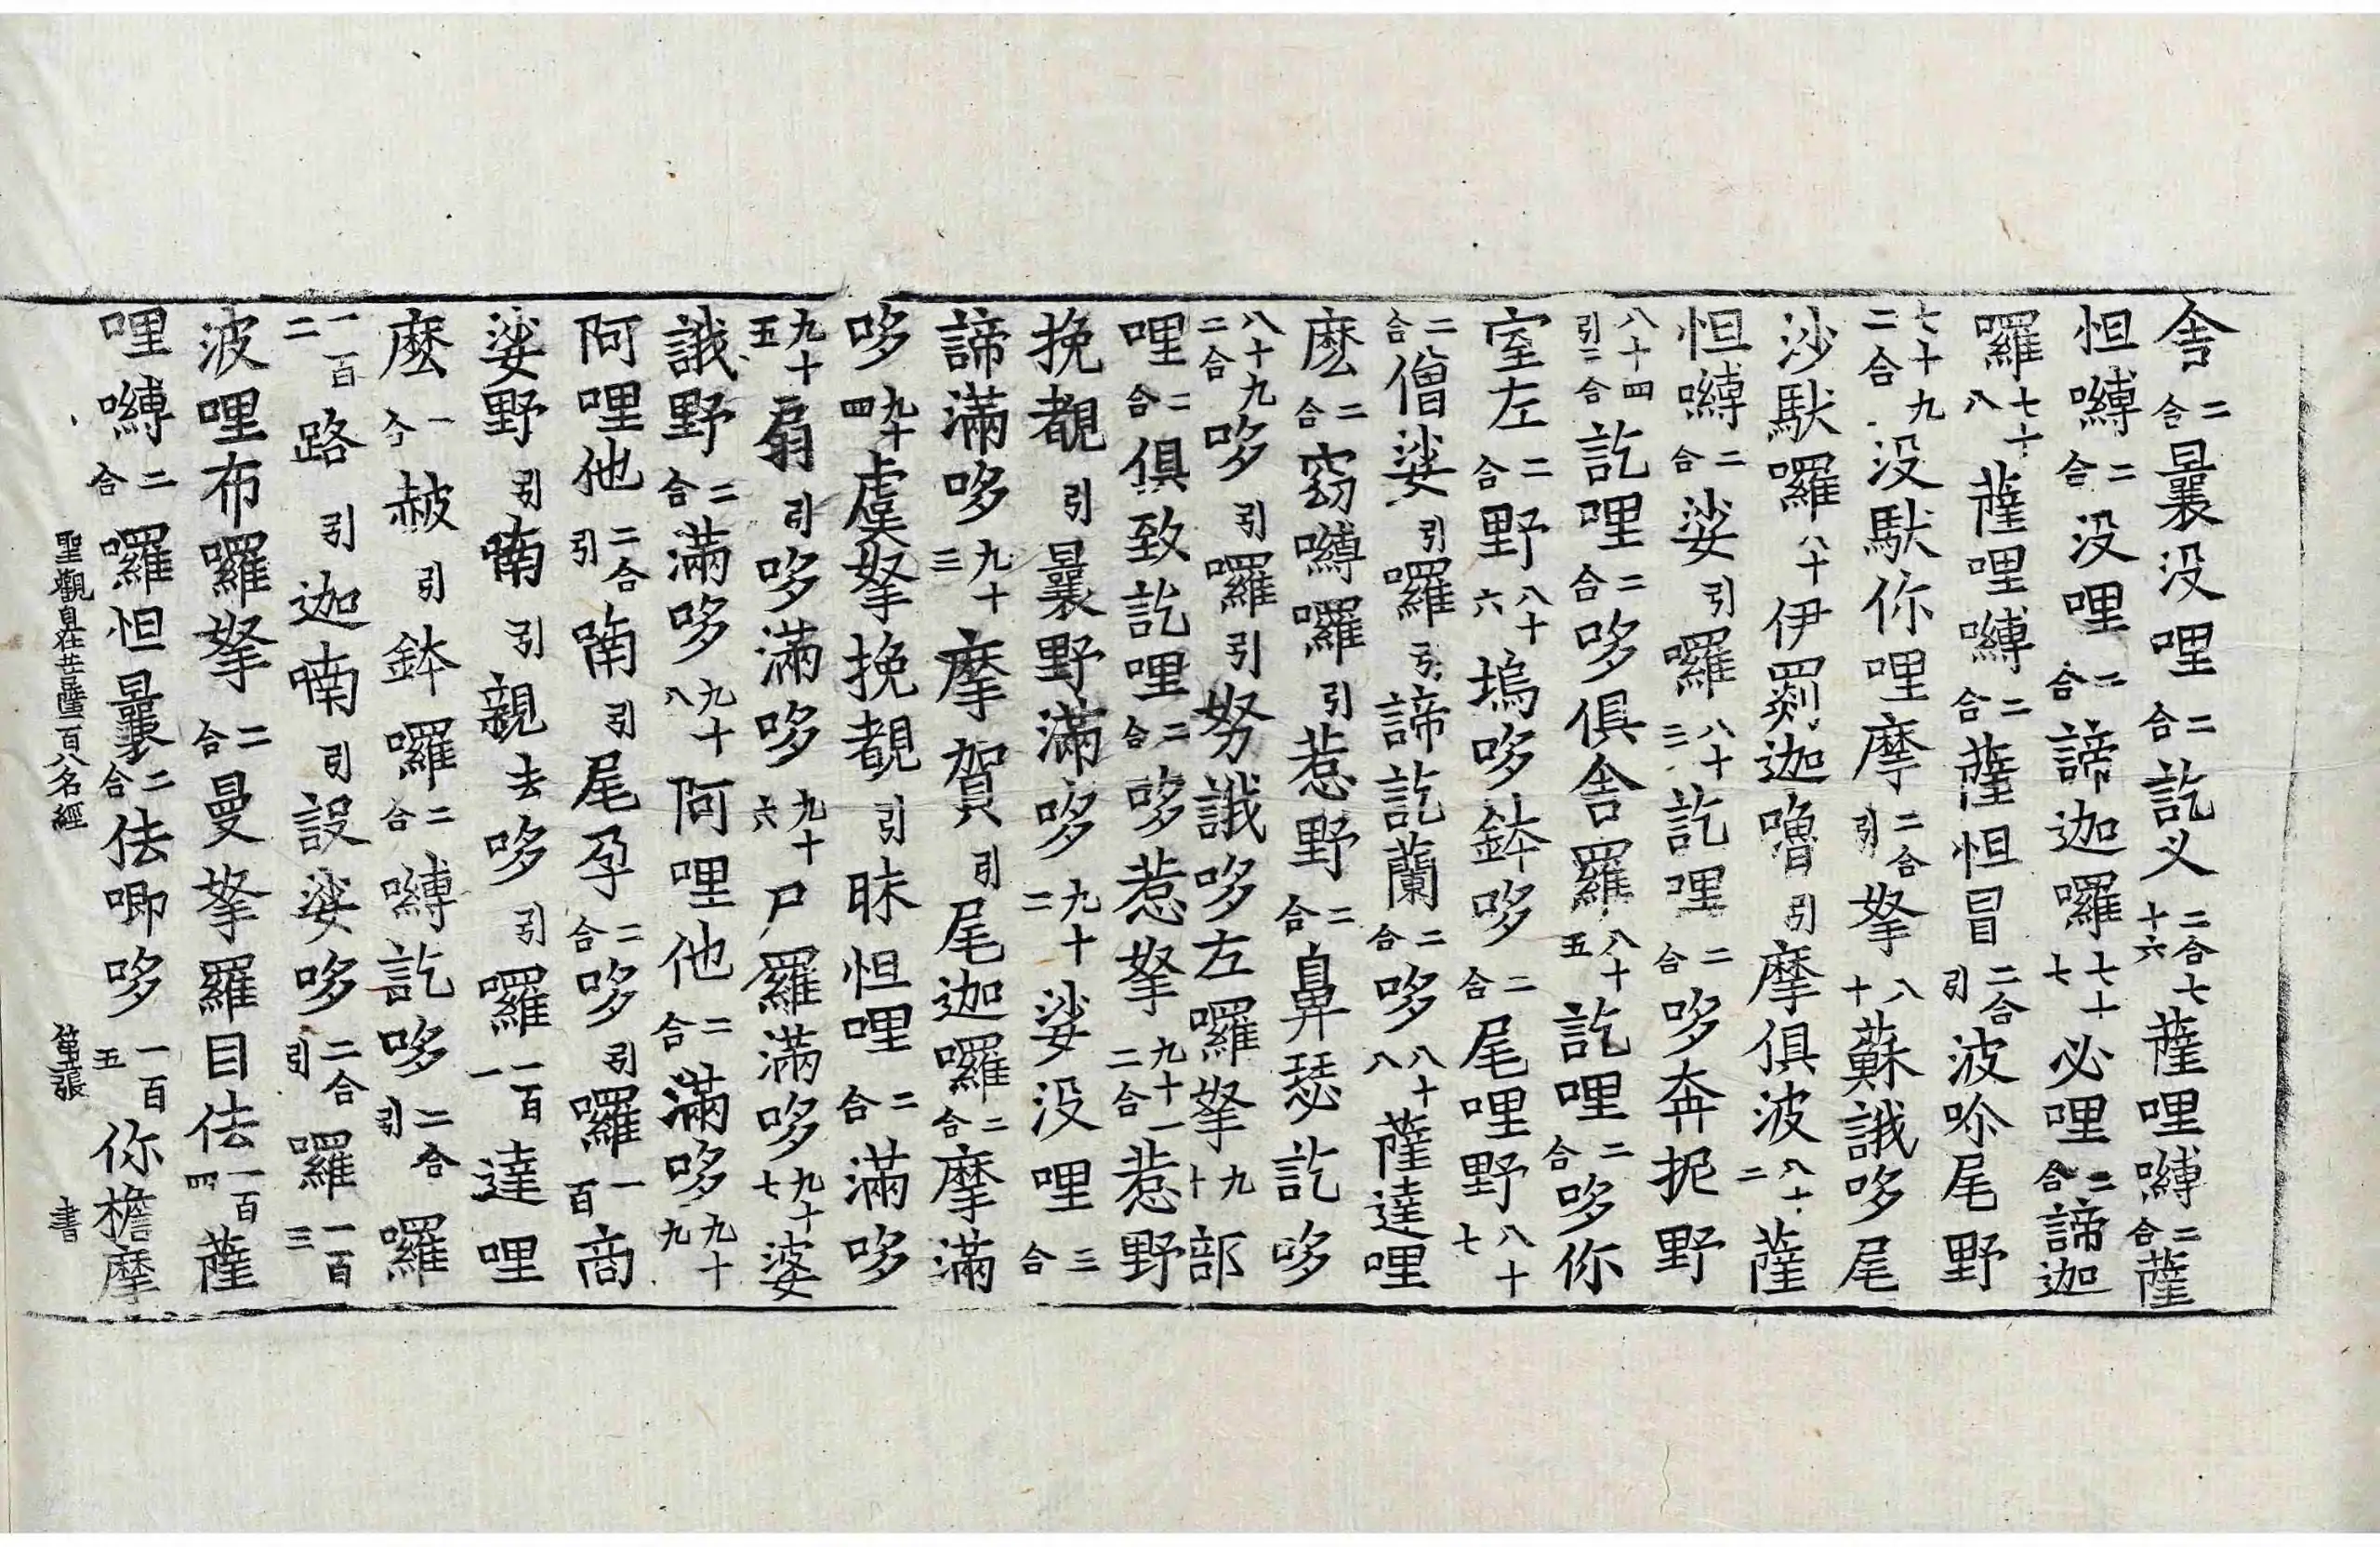 舍二合曩没哩二合訖义二合七十六薩哩嚩二合薩
怛嚩二合没哩二合諦迦囉七十七必哩二合諦迦
囉七十八薩哩嚩二合薩怛冒二合引波吤尾野
二合七十九没馱你哩摩二合引拏八十蘇誐哆尾
沙馱囉八十伊罽迦嚕引摩俱波八十二薩
怛嚩二合娑引囉八十三訖哩二合哆奔抳野
八十四引二合訖哩二合哆俱舍羅八十五訖哩二合哆你
室左二合野八十六塢哆鉢哆二合尾哩野八十七
二合僧娑引囉引諦訖蘭二合哆八十八薩達哩
麽二合窈嚩囉引惹野二合鼻瑟訖哆
八十九二合哆引囉引努誐哆左囉拏九十部
哩二合俱致訖哩二合哆惹拏九十一二合惹野
挽覩引曩野滿哆九十二娑没哩三合
諦滿哆九十三摩賀引尾迦囉二合摩滿
哆九十四虞拏挽覩引昧怛哩二合滿哆
九十五扇引哆滿哆九十六尸羅滿哆九十七婆
誐野二合滿哆九十八阿哩他二合滿哆九十九
阿哩他二合引喃引尾孕二合哆引囉一百商
娑野引喃引親去哆引囉一百一達哩
麽一合赧引鉢囉二合嚩訖哆二合引囉
一百二路引迦喃引設娑哆二合引囉一百三
波哩布囉拏二合曼拏羅目佉一百四薩
哩嚩二合囉怛曩二合佉唧哆一百五你檐摩
聖觀自在菩薩一百八名經 第五張 書